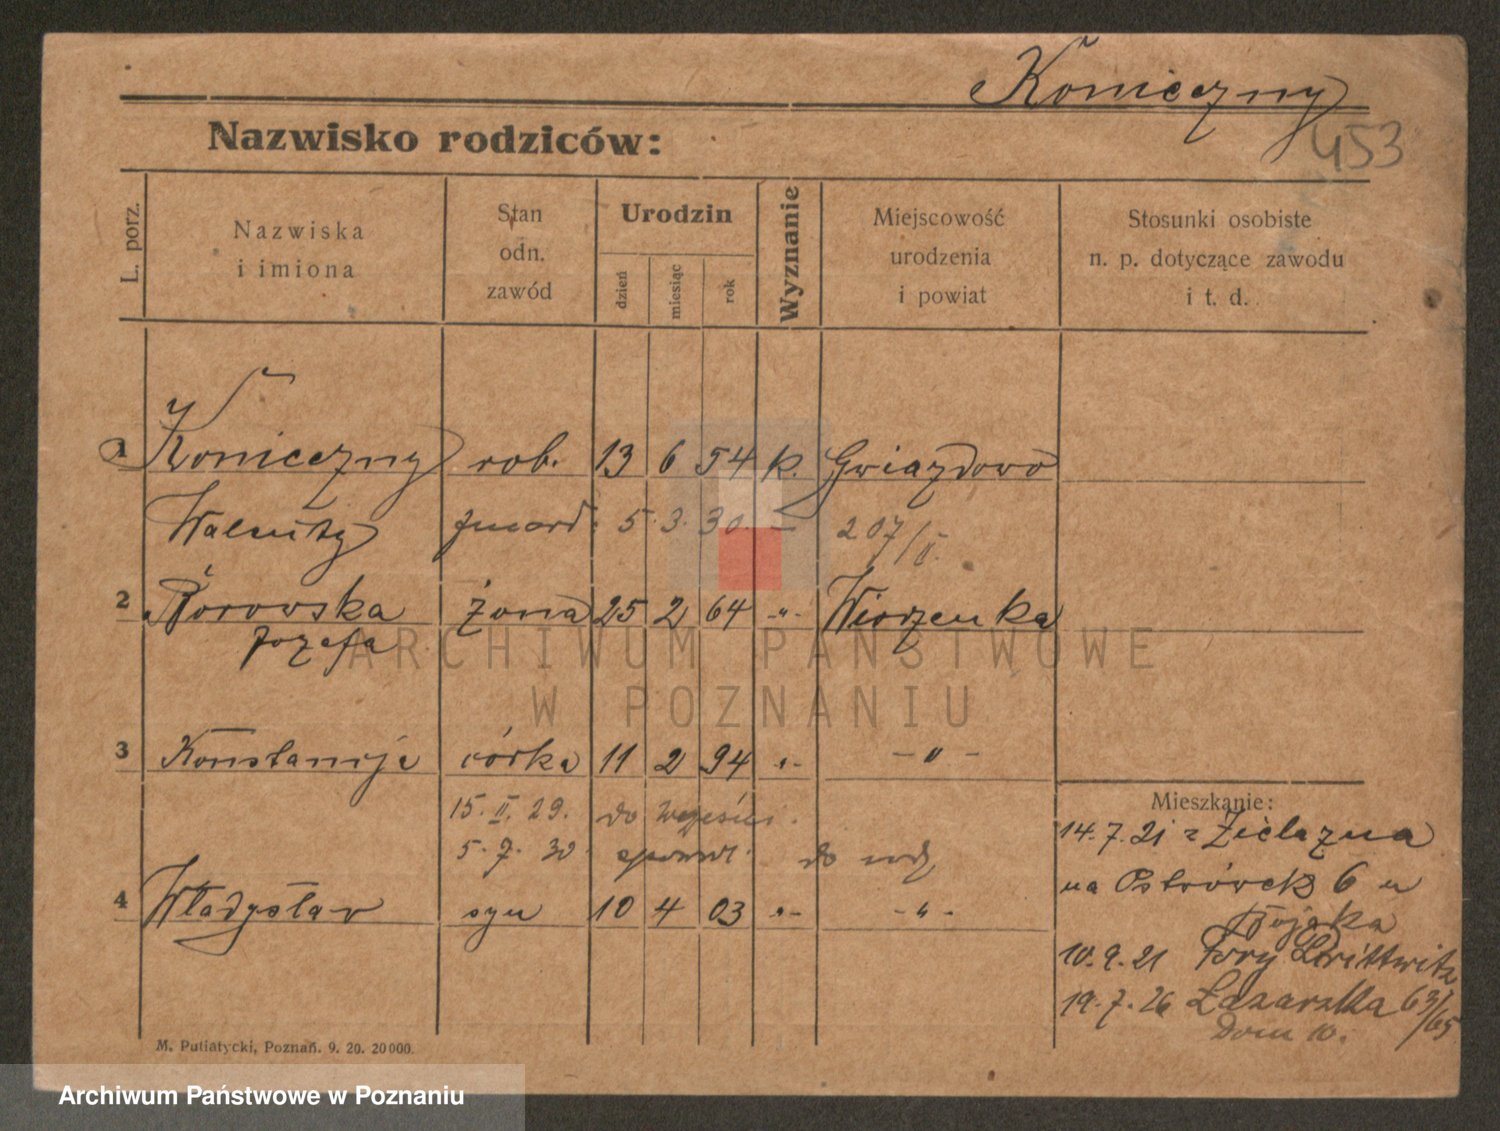 Koniczny
453
Nazwisko rodziców:
L. porz.
Nazwiska
i imiona
Stan
odn.
zawód
Urodzin
dzień
miesiąc
rok
Wyznanie
Miejscowość
urodzenia
i powiat
Stosunki osobiste
n. p. dotyczące zawodu
i t. d.
1 Koniczny rob. 13 6 54 k. Gwiazdowo
Walenty zmarł. 5. 3. 30 — 207/II.
2 Borowska żona 25 2 64 -"- Wierzenka
Józefa
ARCHIWUM PAŃSTWOWE
W POZNANIU
3 Konstancja córka 11 2 94 -"- -"-
15. II. 29. do
5. 7. 30 do
4 Władysław syn 10 4 03 -"- -"-
Mieszkanie:
14.7.21 z Zielazna
na Ostrówek 6 u
Bojaka
10.9.21 Prittwitz
19.7.26 Łazarska 63/65
Dom 10.
M. Putiatycki, Poznań. 9. 20. 20000.
Archiwum Państwowe w Poznaniu